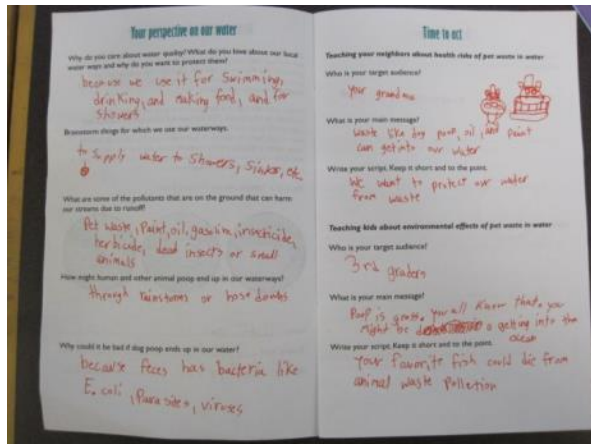 Your perspective on our water
Why do you care about water quality? What do you love about our local
water ways and why do you want to protect them?
because we use it for swimming,
drinking, and making food, and for
showers
Brainstorm things for which we use our waterways.
to supply water to showers, sinks, etc.
What are some of the pollutants that are on the ground that can harm
our streams due to runoff?
Pet waste, Paint, oil, gasoline, insecticide,
herbicide, dead insects or small
animals
How might human and other animal poop end up in our waterways?
through rainstorms or
Why could it be bad if dog poop ends up in our water?
because feces has bacteria like
E. coli, Parasites, viruses
Time to act
Teaching your neighbors about health risks of pet waste in water
Who is your target audience?
Your grandma
What is your main message?
Waste like dog poop, oil, and paint
can get into our water
Write your script. Keep it short and to the point.
We want to protect our water
from waste
Teaching kids about environmental effects of pet waste in water
Who is your target audience?
3rd graders
What is your main message?
Poop is gross. you all know that. you
might be getting into the
ocean
Write your script. Keep it short and to the point.
Your favorite fish could die from
animal waste pollution